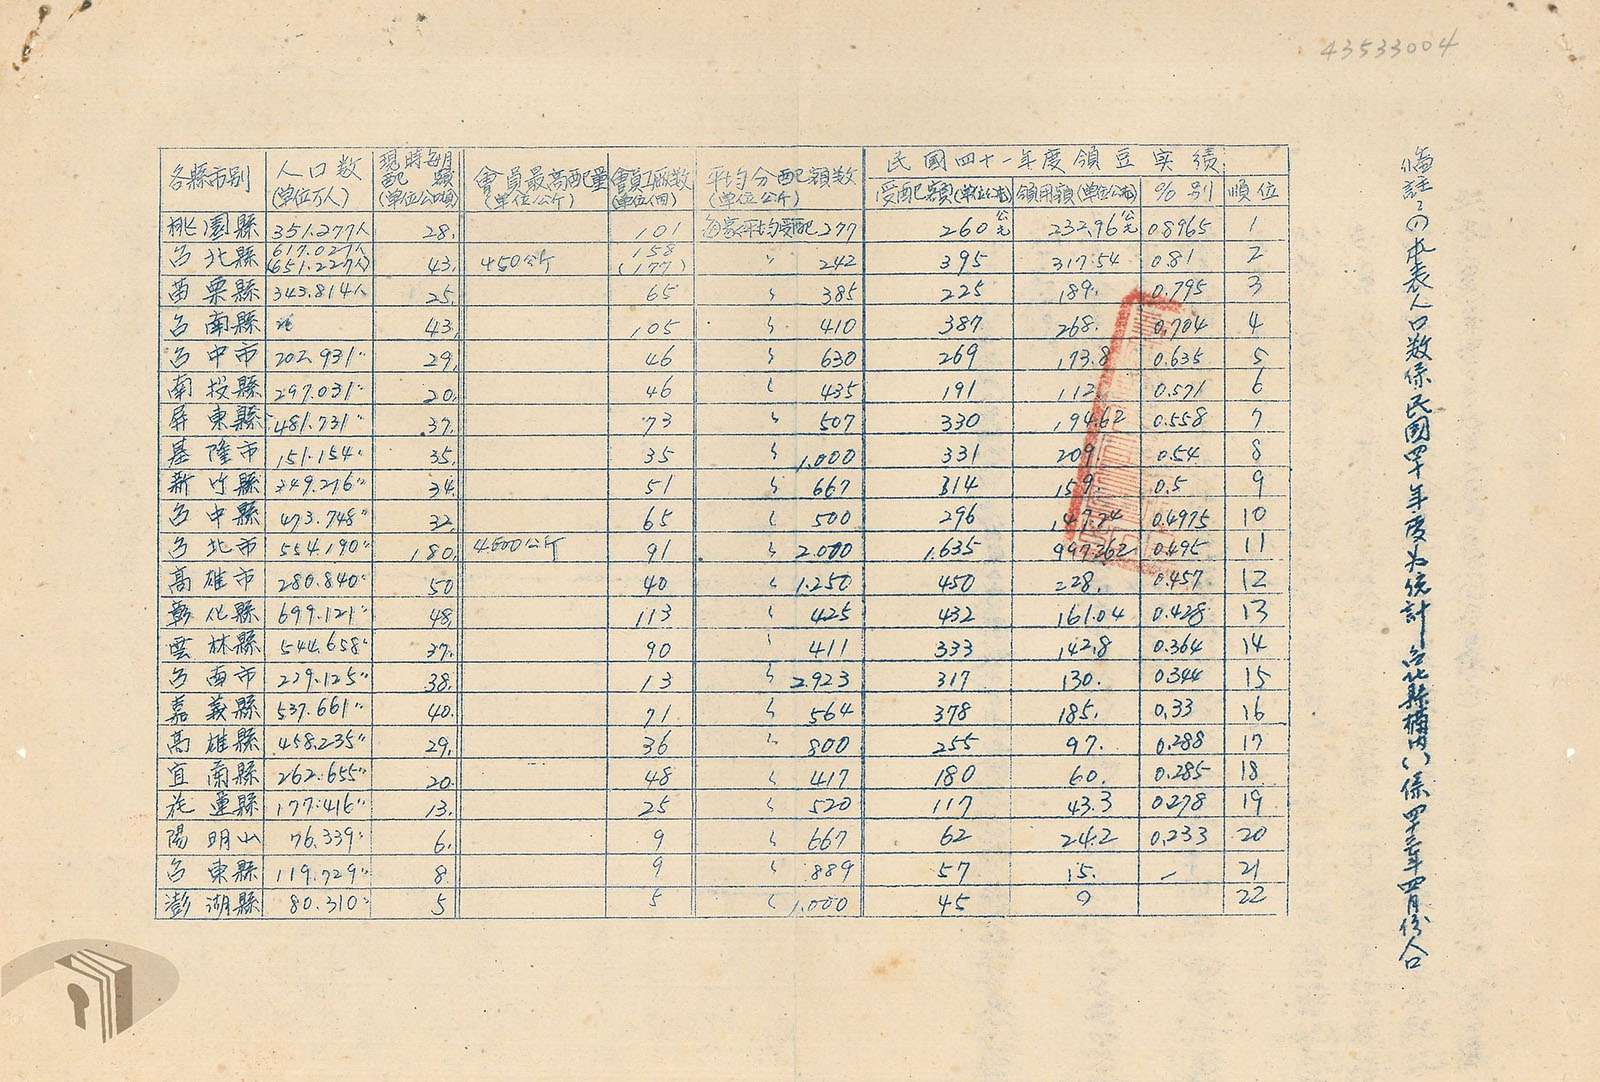 43533004
各縣市別 人口数(單位万人) 現時每月配額(單位公噸) 會員最高配量(單位公斤) 會員工廠数(單位個) 平均分配額数(單位公斤) 民國四十一年度領豆实績:
受配額(單位公噸) 領用額(單位公噸) %别 順位
桃園縣 351.277人 28. 101 每家平均受配 277 260公噸 232.96公噸 0.8965 1
台北縣 617.027人 (651.227人) 43. 450公斤 158 (177) 〃 242 395 317.54 0.81 2
苗栗縣 343.814人 25. 65 〃 385 225 189. 0.795 3
台南縣 43. 105 〃 410 387 268. 0.704 4
台中市 202.931〃 29. 46 〃 630 269 173.8 0.635 5
南投縣 297.031〃 20. 46 〃 435 191 112. 0.571 6
屏東縣 481.731〃 37. 73 〃 507 330 194.62 0.558 7
基隆市 151.154〃 35. 35 〃 1.000 331 209. 0.54 8
新竹縣 349.276〃 34. 51 〃 667 314 159. 0.5 9
台中縣 473.748〃 32. 65 〃 500 296 147.74 0.4975 10
台北市 554.190〃 180. 4500公斤 91 〃 2.000 1.635 997.262 0.495 11
高雄市 280.840〃 50 40 〃 1.250 450 228. 0.457 12
彰化縣 699.121〃 48. 113 〃 425 432 161.04 0.428 13
雲林縣 544.658〃 37. 90 〃 411 333 142.8 0.364 14
台南市 229.125〃 38. 13 〃 2.923 317 130. 0.344 15
嘉義縣 537.661〃 40. 71 〃 564 378 185. 0.33 16
高雄縣 458.235〃 29. 36 〃 800 255 97. 0.288 17
宜蘭縣 262.655〃 20. 48 〃 417 180 60. 0.285 18
花蓮縣 177.416〃 13. 25 〃 520 117 43.3 0.278 19
陽明山 76.339〃 6. 9 〃 667 62 24.2 0.233 20
台東縣 119.729〃 8. 9 〃 889 57 15. — 21
澎湖縣 80.310〃 5 5 〃 1.000 45 0 22
備註:(1)本表人口数係民國四十年度为統計—台北縣欄內( )係四十三年四月份人口